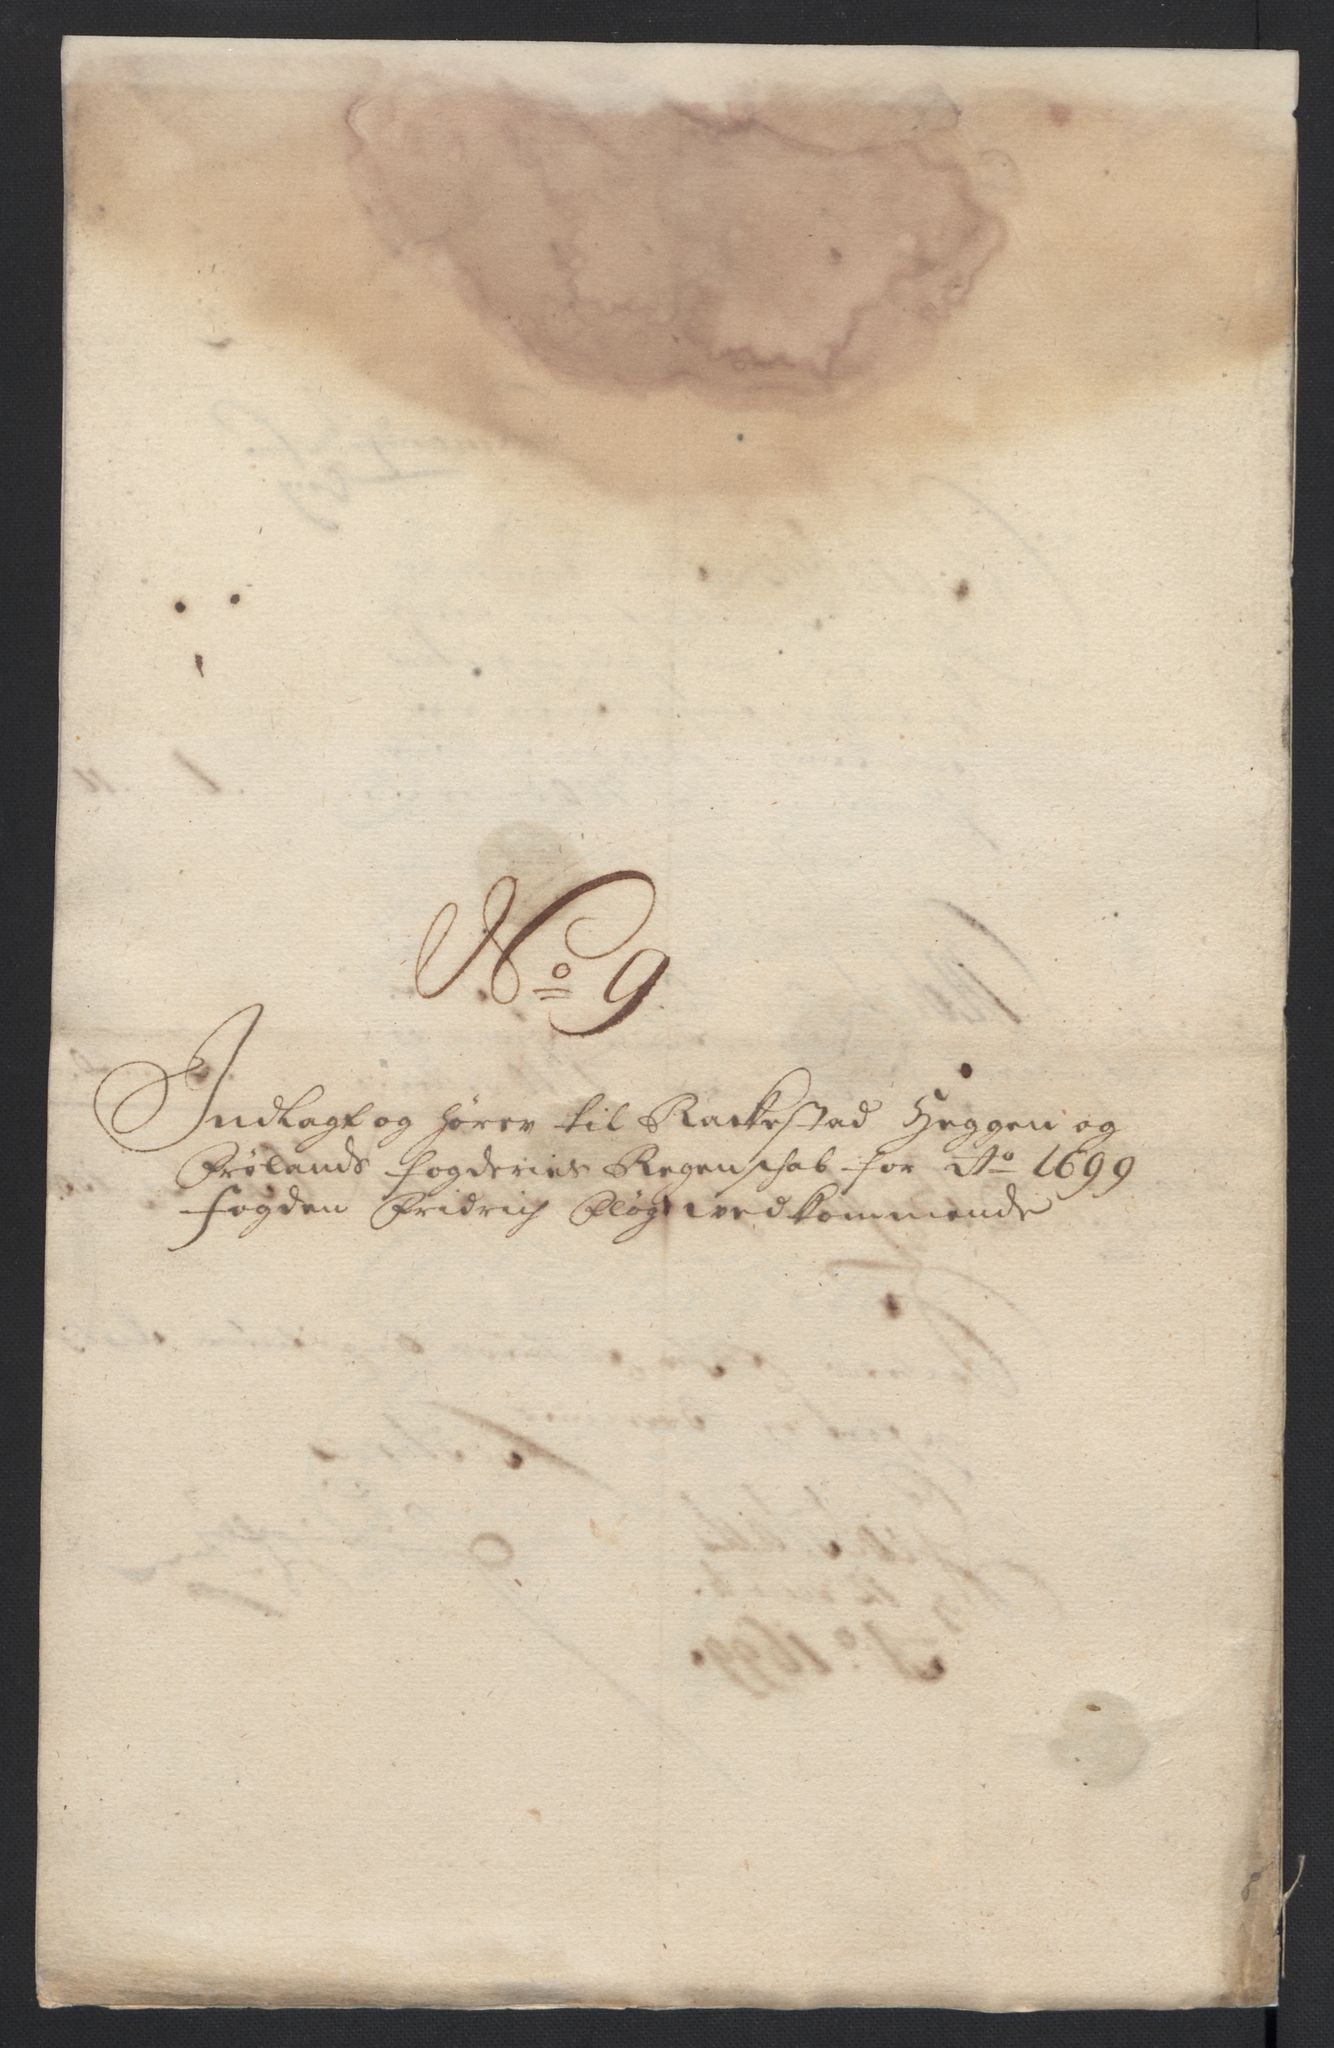 No 9
Indlagt og hører til Rackestad Heggen og
Frølands fogderies Regenschab for Ao 1699
fogden Fridrich Pløg vedkommende